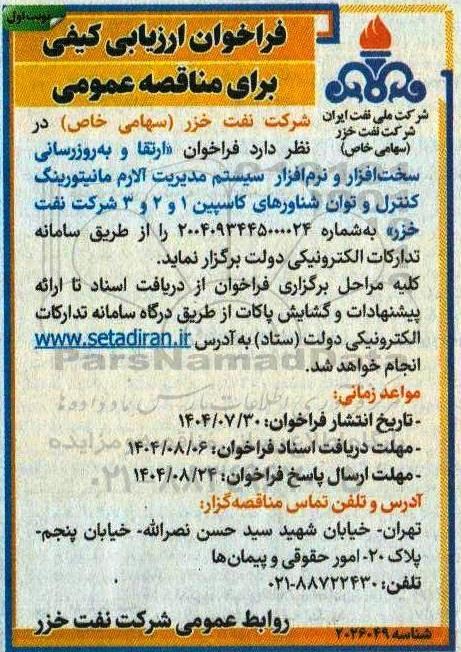 نوبت اول
فراخوان ارزیابی کیفی
برای مناقصه عمومی
شرکت ملی نفت ایران
شرکت نفت خزر
(سهامی خاص)
شرکت نفت خزر (سهامی خاص) در
نظر دارد فراخوان «ارتقا و به‌روزرسانی
سخت‌افزار و نرم‌افزار سیستم مدیریت آلارم مانیتورینگ
کنترل و توان شناورهای کاسپین ۱ و ۲ و ۳ شرکت نفت
خزر» به‌شماره ۲۰۰۴۰۹۳۴۴۵۰۰۰۰۲۴ را از طریق سامانه
تدارکات الکترونیکی دولت برگزار نماید.
کلیه مراحل برگزاری فراخوان از دریافت اسناد تا ارائه
پیشنهادات و گشایش پاکات از طریق درگاه سامانه تدارکات
الکترونیکی دولت (ستاد) به آدرس www.setadiran.ir
انجام خواهد شد.
مواعد زمانی:
- تاریخ انتشار فراخوان: ۱۴۰۴/۰۷/۳۰
- مهلت دریافت اسناد فراخوان: ۱۴۰۴/۰۸/۰۶
- مهلت ارسال پاسخ فراخوان: ۱۴۰۴/۰۸/۲۴
آدرس و تلفن تماس مناقصه‌گزار:
تهران- خیابان شهید سید حسن نصرالله- خیابان پنجم-
پلاک ۲۰- امور حقوقی و پیمان‌ها
تلفن: ۸۸۷۲۲۴۳۰-۰۲۱
روابط عمومی شرکت نفت خزر
شناسه ۲۰۲۶۰۴۹
ParsNamadData